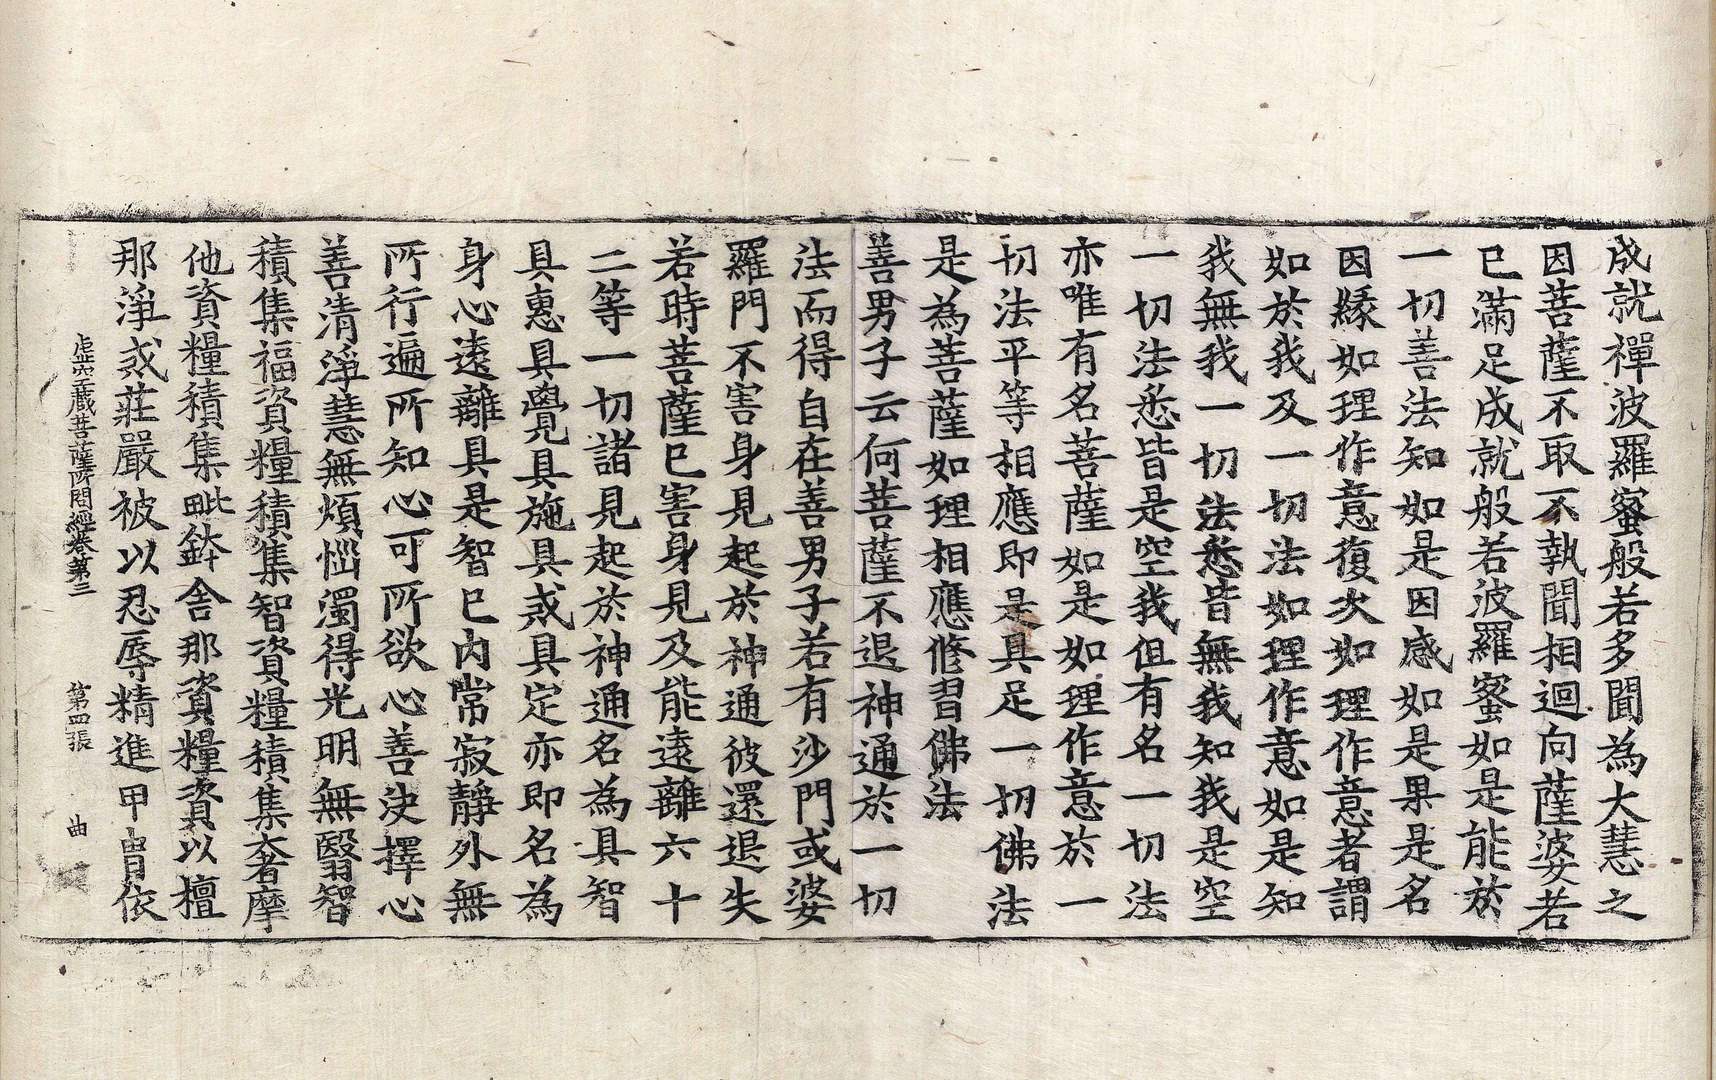 成就禪波羅蜜般若多聞為大慧之
因菩薩不取不執聞相迴向薩婆若
已滿足成就般若波羅蜜如是能於
一切善法知如是因感如是果是名
因緣如理作意復次如理作意者謂
如於我及一切法如理作意如是知
我無我一切法悉皆無我知我是空
一切法悉皆是空我但有名一切法
亦唯有名菩薩如是如理作意於一
切法平等相應即是具足一切佛法
是為菩薩如理相應修習佛法
善男子云何菩薩不退神通於一切
法而得自在善男子若有沙門或婆
羅門不害身見起於神通彼還退失
若時菩薩已害身見及能遠離六十
二等一切諸見起於神通名為具智
具惠具覺具施具戒具定亦即名為
身心遠離具是智已內常寂靜外無
所行遍所知心可所欲心善決擇心
善清淨慧無煩惱濁得光明無翳智
積集福資糧積集智資糧積集奢摩
他資糧積集毗鉢舍那資糧資以檀
那淨戒莊嚴被以忍辱精進甲冑依
虛空藏菩薩所問經卷第三 第四張 曲